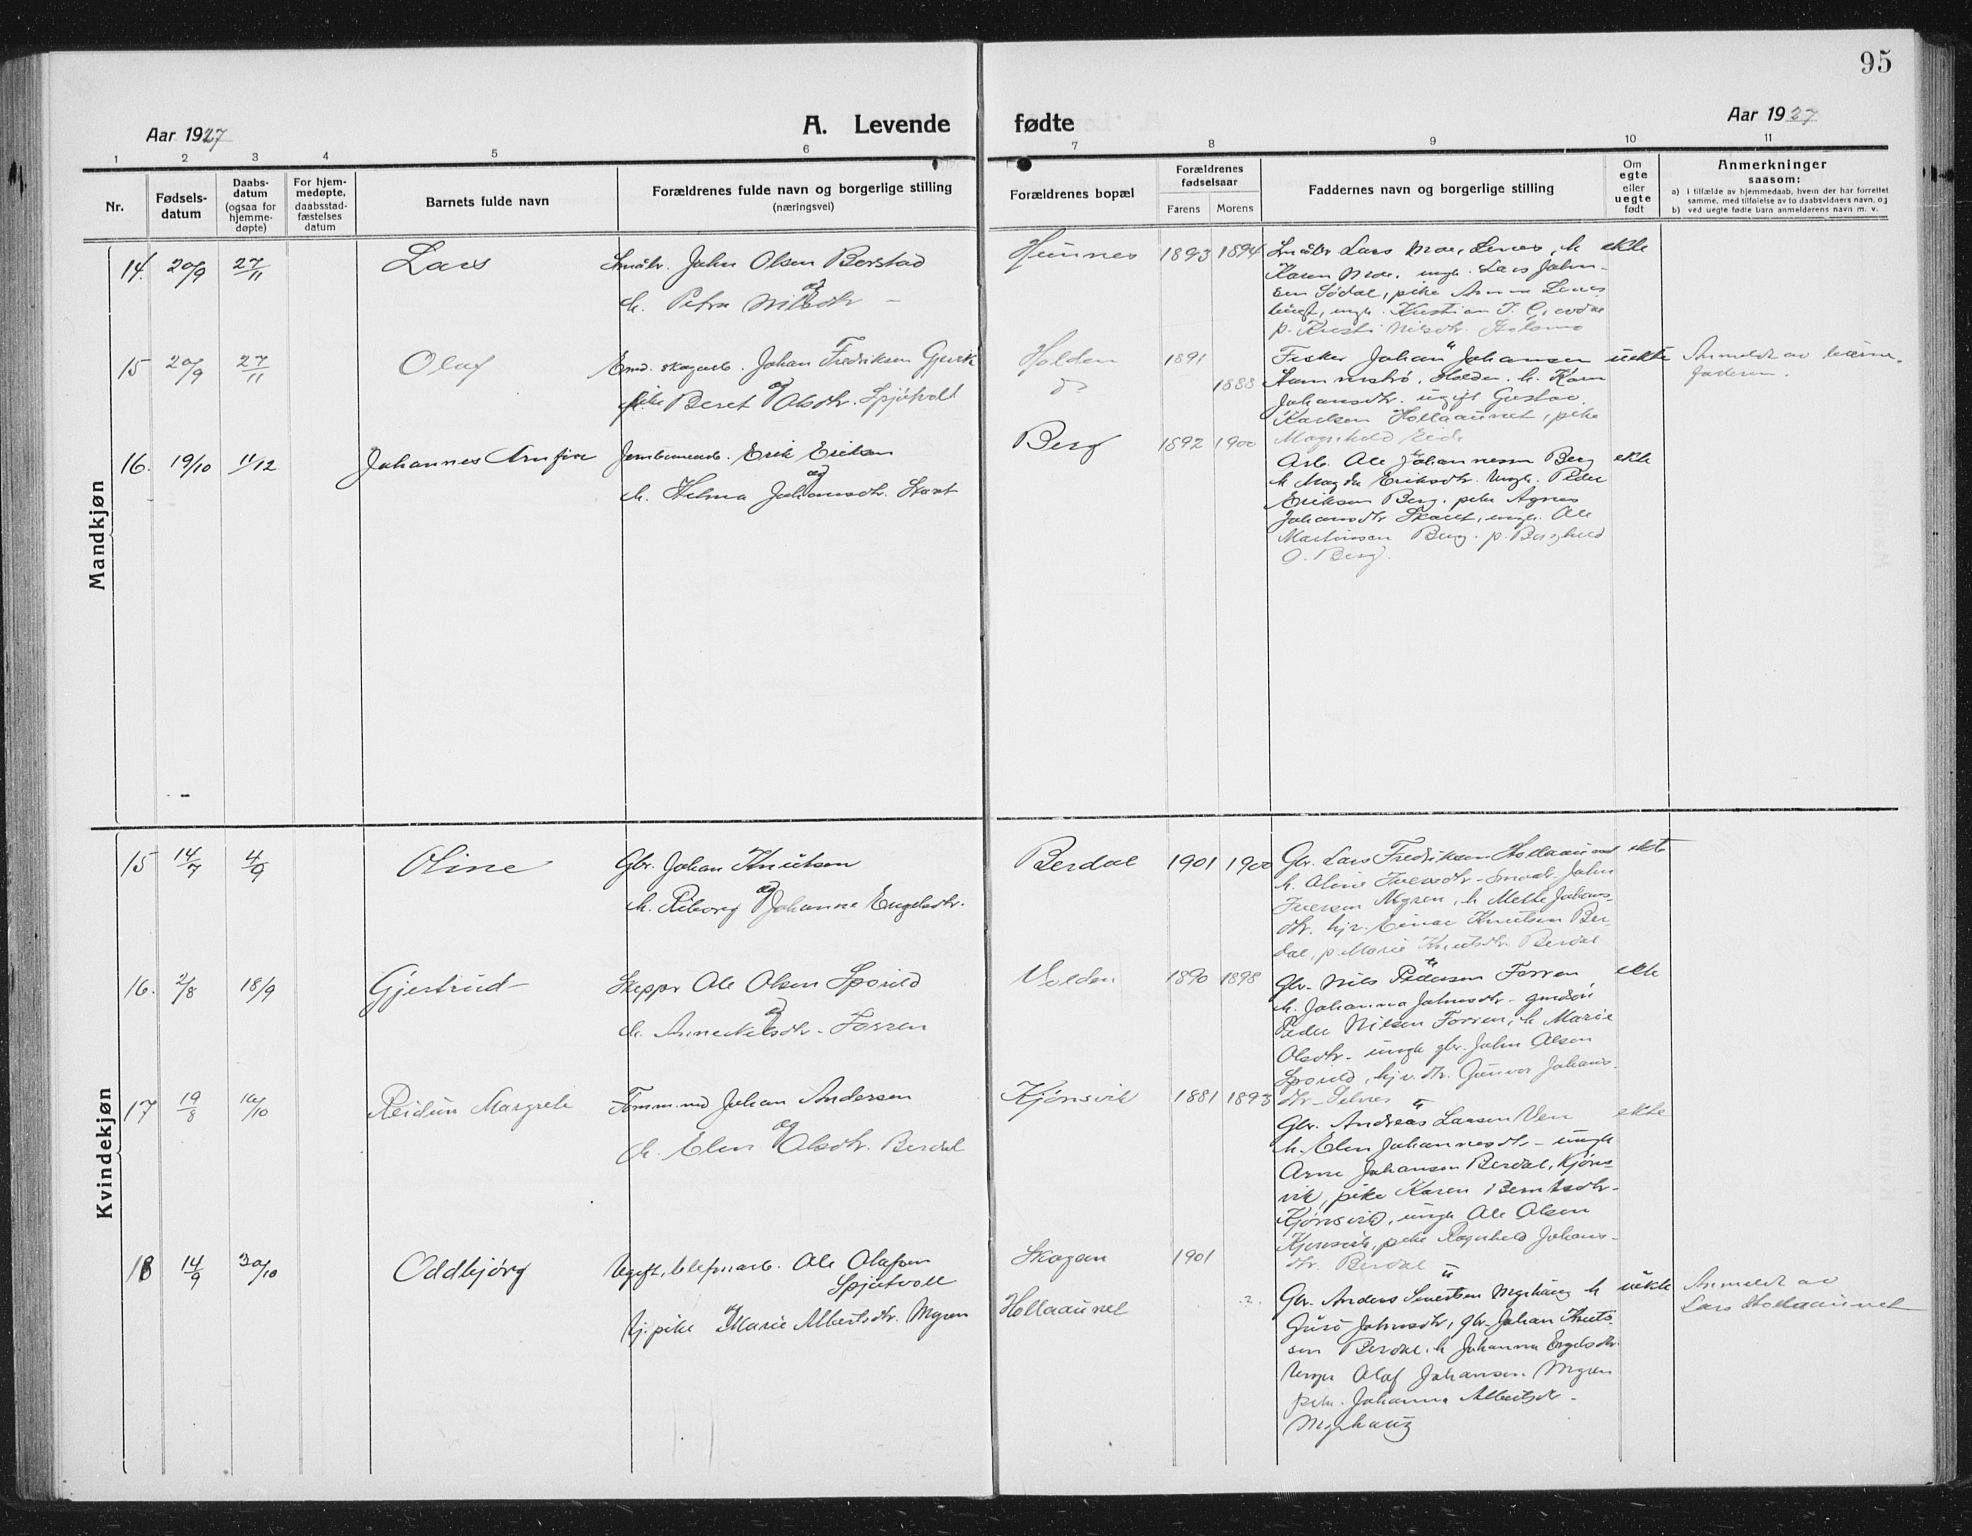 95
Aar 1927
A. Levende fødte
Aar 1927
1 2 3 4 5 6 7 8 9 10 11
Nr.
Fødsels-
datum
Daabs-
datum
(ogsaa for
hjemme-
døpte)
For hjem-
medøpte,
daabsstad-
fæstelses
datum
Barnets fulde navn
Forældrenes fulde navn og borgerlige stilling
(næringsvei)
Forældrenes bopæl
Forældrenes
fødselsaar
Farens Morens
Faddernes navn og borgerlige stilling
Om
egte
eller
uegte
født
Anmerkninger
saasom:
a) i tilfælde av hjemmedaab, hvem der har forrettet
samme, med tilføielse av to daabsvidners navn, og
b) ved uegte fødte barn anmelderens navn m. v.
Mandkjøn
14. 20/9 27/11 Lars
Smaabr. John Olsen Berstad
og
h. Petra Nilsdtr.
Hunnes 1893 1894
Lars Moe, h.
Karen Moe, ungk. Lars John-
sen Sødal, pike Anna
ungk. Kristian
ekte
15 20/9 27/11 Olaf
skogarb. Johan Fredriksen Gjervik
og
pike Beret Olsdtr. Spjutvold
Holden 1891
do 1888
Fisker Johan Johansen
Holden. h. Karn
Johansdtr. ugift Gustav
Karlsen Hollaaunet, pike
Magnhild Eide
uekte
Anmeldt av barne-
faderen.
16. 19/10 11/12 Johannes Arnfinn
Jernbanearb. Erik Eriksen
og
h. Helma Johansdtr. Skaret
Berg 1892 1900
Arb. Ole Johannesen Berg
h Magda Eriksdtr. Ungk. Peder
Eriksen Berg, pike Agnes
Johansdtr Skaret, ungk. Ole
Martinsen Berg. p. Borghild
O. Berg.
ekte
Kvindekjøn
15 14/7 4/9 Oline
Gbr. Johan Knutsen
og
h. Riborg Johanna Engelsdtr.
Berdal 1901 1900
Gbr. Lars Fredriksen Hollaaunet
h. Oline Iversdtr - Smaabr. John
Iversen Myren, h Mette Johans-
dtr. hjv. Einar Knutsen Ber-
dal, p. Marie Knutsdtr. Berdal
ekte
16. 2/8 18/9 Gjertrud
Skeppr Ole Olsen Sporild
og
h. Anne Nilsdtr. Forren
Volden 1890 1898
Gbr. Nils Pedersen Forren
h. Johanna Johnsdtr - gmdsøn
Peder Nilsen Forren, h Marie
Olsdtr - ungk gbr. John Olsen
Sporild, hjv. dtr. Gunvor Johans-
dtr Selnes
ekte
17 19/8 16/10 Reidun Margrete
Tømm.md Johan Andersen
og
h. Elen Olsdtr. Berdal
Kjønsvik 1881 1893
Gbr. Andreas Larsen Ven
h. Elen Johannesdtr - ungk
Arne Johansen Berdal, Kjøns-
vik, pike Karen Berntsdtr.
Kjønsvik, ungk Ole Olsen
Kjønsvik, pike Ragnhild Johans-
dtr. Berdal
ekte
18 14/9 30/10 Oddbjørg
Ugift, telefonarb. Ole Olafsen
Spjutvold
og
tj. pike Marie Albertsdtr. Myren
Skogan 1901
Hollaaunet ?
Gbr. Anders Sivertsen Myrhaug h
Guro Johnsdtr, gbr. Johan Knut-
sen Berdal, h Johanna Engelsdtr.
Ungk Olaf Johansen Myren
pike. Johanna Albertsdtr -
Myrhaug
uekte
Anmeldt av
Lars Hollaaunet